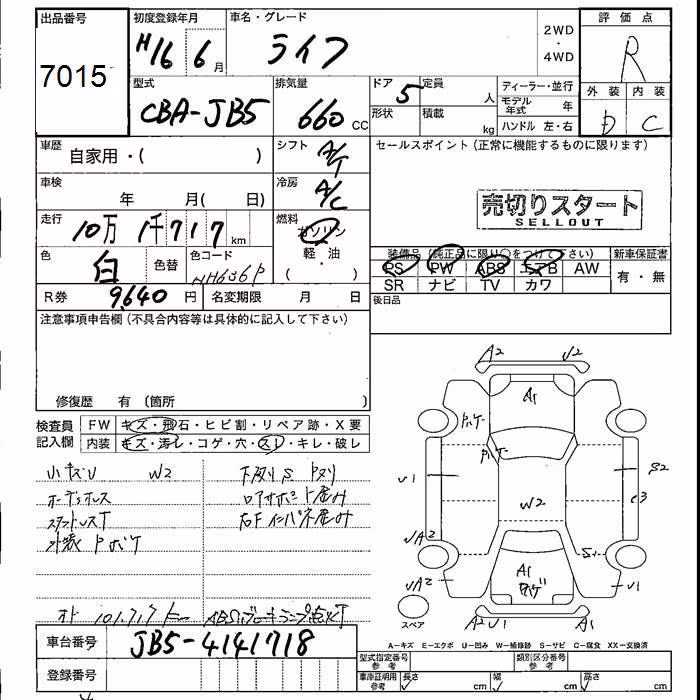 出品番号 7015
初度登録年月 H16 6月
車名・グレード ライフ
2WD・4WD
評価点 R
型式 CBA-JB5
排気量 660 CC
ドア形状 5
定員 人
積載 kg
ディーラー・並行
モデル年式 年
ハンドル 左・右
外装 D
内装 C
車歴 自家用・( )
シフト A/T
セールスポイント(正常に機能するものに限ります)
車検 年 月( 日)
冷房 A/C
売切りスタート
SELLOUT
走行 10万1千717 km
燃料 ガソリン
軽・油
・( )
色 白
色替
色コード NH636P
装備品(純正品に限り○をつけて下さい)
新車保証書
PS PW ABS エアB AW
有・無
SR ナビ TV カワ
R券 9,640円
名変期限 月 日
後日品
注意事項申告欄(不具合内容等は具体的に記入して下さい)
修復歴 有(箇所
検査員記入欄
FW キズ・飛石・ヒビ割・リペア跡・X要
内装 キズ・汚レ・コゲ・穴・スレ・キレ・破レ
小キズU W2
外装Pボケ
101,717km
ABS
A2 U2
A1
U1
S2
C3
W2
UA2
S1
A1
UA2
U1
A2 U1
A1
スペア
車台番号 JB5-4141718
A-キズ E-エクボ U-凹み W-補修跡 S-サビ C-腐食 XX-交換済
登録番号
型式指定番号 参考
類別区分番号 参考
車庫証明用 参考
長さ cm
幅 cm
高さ cm